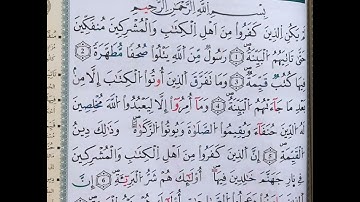 بِسْمِ اللَّهِ الرَّحْمَٰنِ الرَّحِيمِ
لَمْ يَكُنِ الَّذِينَ كَفَرُوا مِنْ أَهْلِ الْكِتَابِ وَالْمُشْرِكِينَ مُنفَكِّينَ
حَتَّىٰ تَأْتِيَهُمُ الْبَيِّنَةُ ۝١ رَسُولٌ مِّنَ اللَّهِ يَتْلُو صُحُفًا مُّطَهَّرَةً ۝٢
فِيهَا كُتُبٌ قَيِّمَةٌ ۝٣ وَمَا تَفَرَّقَ الَّذِينَ أُوتُوا الْكِتَابَ إِلَّا مِن
بَعْدِ مَا جَاءَتْهُمُ الْبَيِّنَةُ ۝٤ وَمَا أُمِرُوا إِلَّا لِيَعْبُدُوا اللَّهَ مُخْلِصِينَ
لَهُ الدِّينَ حُنَفَاءَ وَيُقِيمُوا الصَّلَاةَ وَيُؤْتُوا الزَّكَاةَ وَذَٰلِكَ دِينُ
الْقَيِّمَةِ ۝٥ إِنَّ الَّذِينَ كَفَرُوا مِنْ أَهْلِ الْكِتَابِ وَالْمُشْرِكِينَ
فِي نَارِ جَهَنَّمَ خَالِدِينَ فِيهَا أُولَٰئِكَ هُمْ شَرُّ الْبَرِيَّةِ ۝٦ إِنَّ